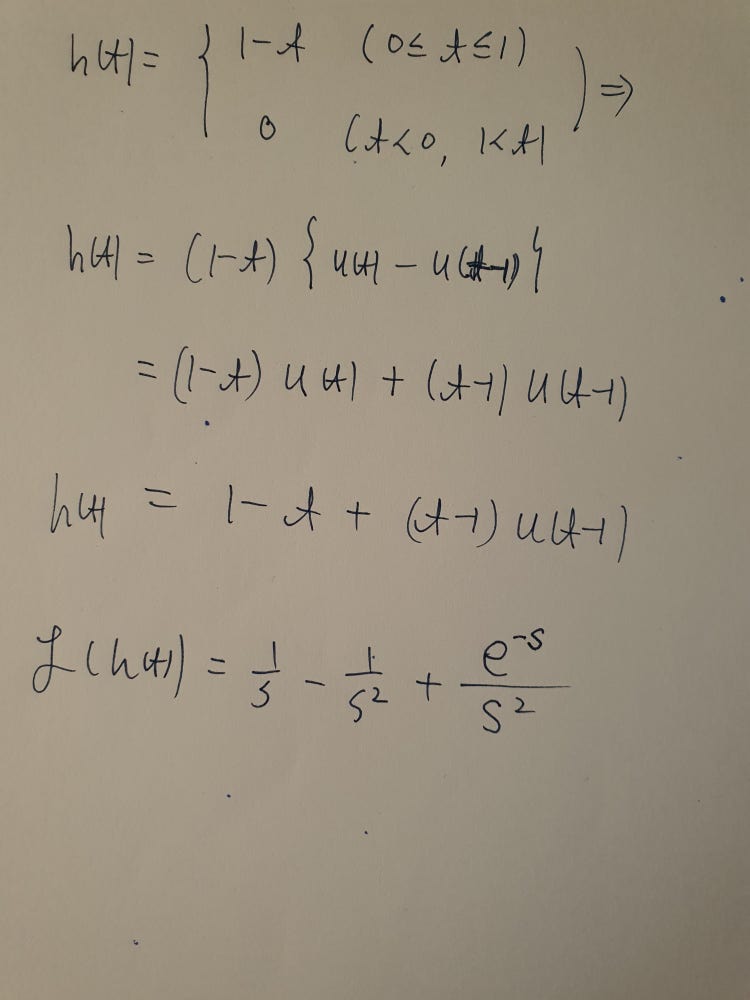 h(t) = { 1-t (0≤ t ≤1)
0 (t<0, 1<t) ) ⇒
h(t) = (1-t) { u(t) - u(t-1) }
= (1-t) u(t) + (t-1) u(t-1)
h(t) = 1-t + (t-1) u(t-1)
ℒ(h(t)) = 1/s - 1/s² + e^-s/s²